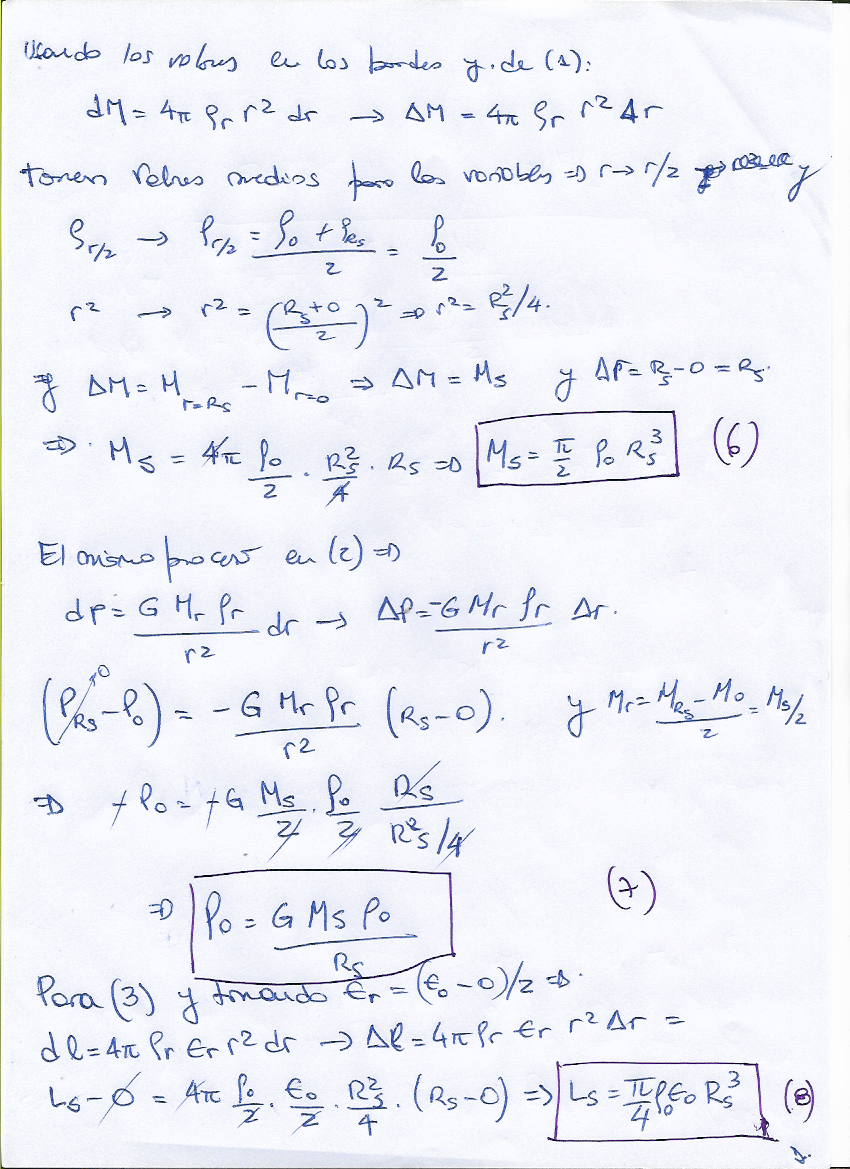 Usando los valores en los bordes y de (1):
dM = 4π ρr r² dr → ΔM = 4π ρr r² Δr
tomem valores medios para las variables ⇒ r → r/2 y
ρr/2 → ρr/2 = (ρ0 + ρRs)/2 = ρ0/2
r² → r² = ((Rs+0)/2)² ⇒ r² = Rs²/4.
y ΔM = M r=Rs − M r=0 ⇒ ΔM = Ms y Δr = Rs − 0 = Rs.
⇒ Ms = 4π ρ0/2 · Rs²/4 · Rs ⇒ Ms = π/2 ρ0 Rs³ (6)
El mismo proceso en (2) ⇒
dP = G Mr ρr / r² dr → ΔP = −G Mr ρr / r² Δr.
(PRs − P0) = − G Mr ρr / r² (Rs − 0). y Mr = (MRs − M0)/2 = Ms/2
0
⇒ − P0 = − G Ms/2 · ρ0/2 Rs / (Rs²/4)
⇒ P0 = G Ms ρ0 / Rs (7)
Para (3) y tomando ϵr = (ϵ0 − 0)/2 ⇒
dl = 4π ρr ϵr r² dr → Δl = 4π ρr ϵr r² Δr =
Ls − 0 = 4π ρ0/2 · ϵ0/2 · Rs²/4 · (Rs − 0) ⇒ Ls = π/4 ρ0 ϵ0 Rs³ (8)